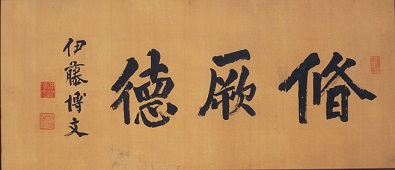 脩厥德
伊藤博文